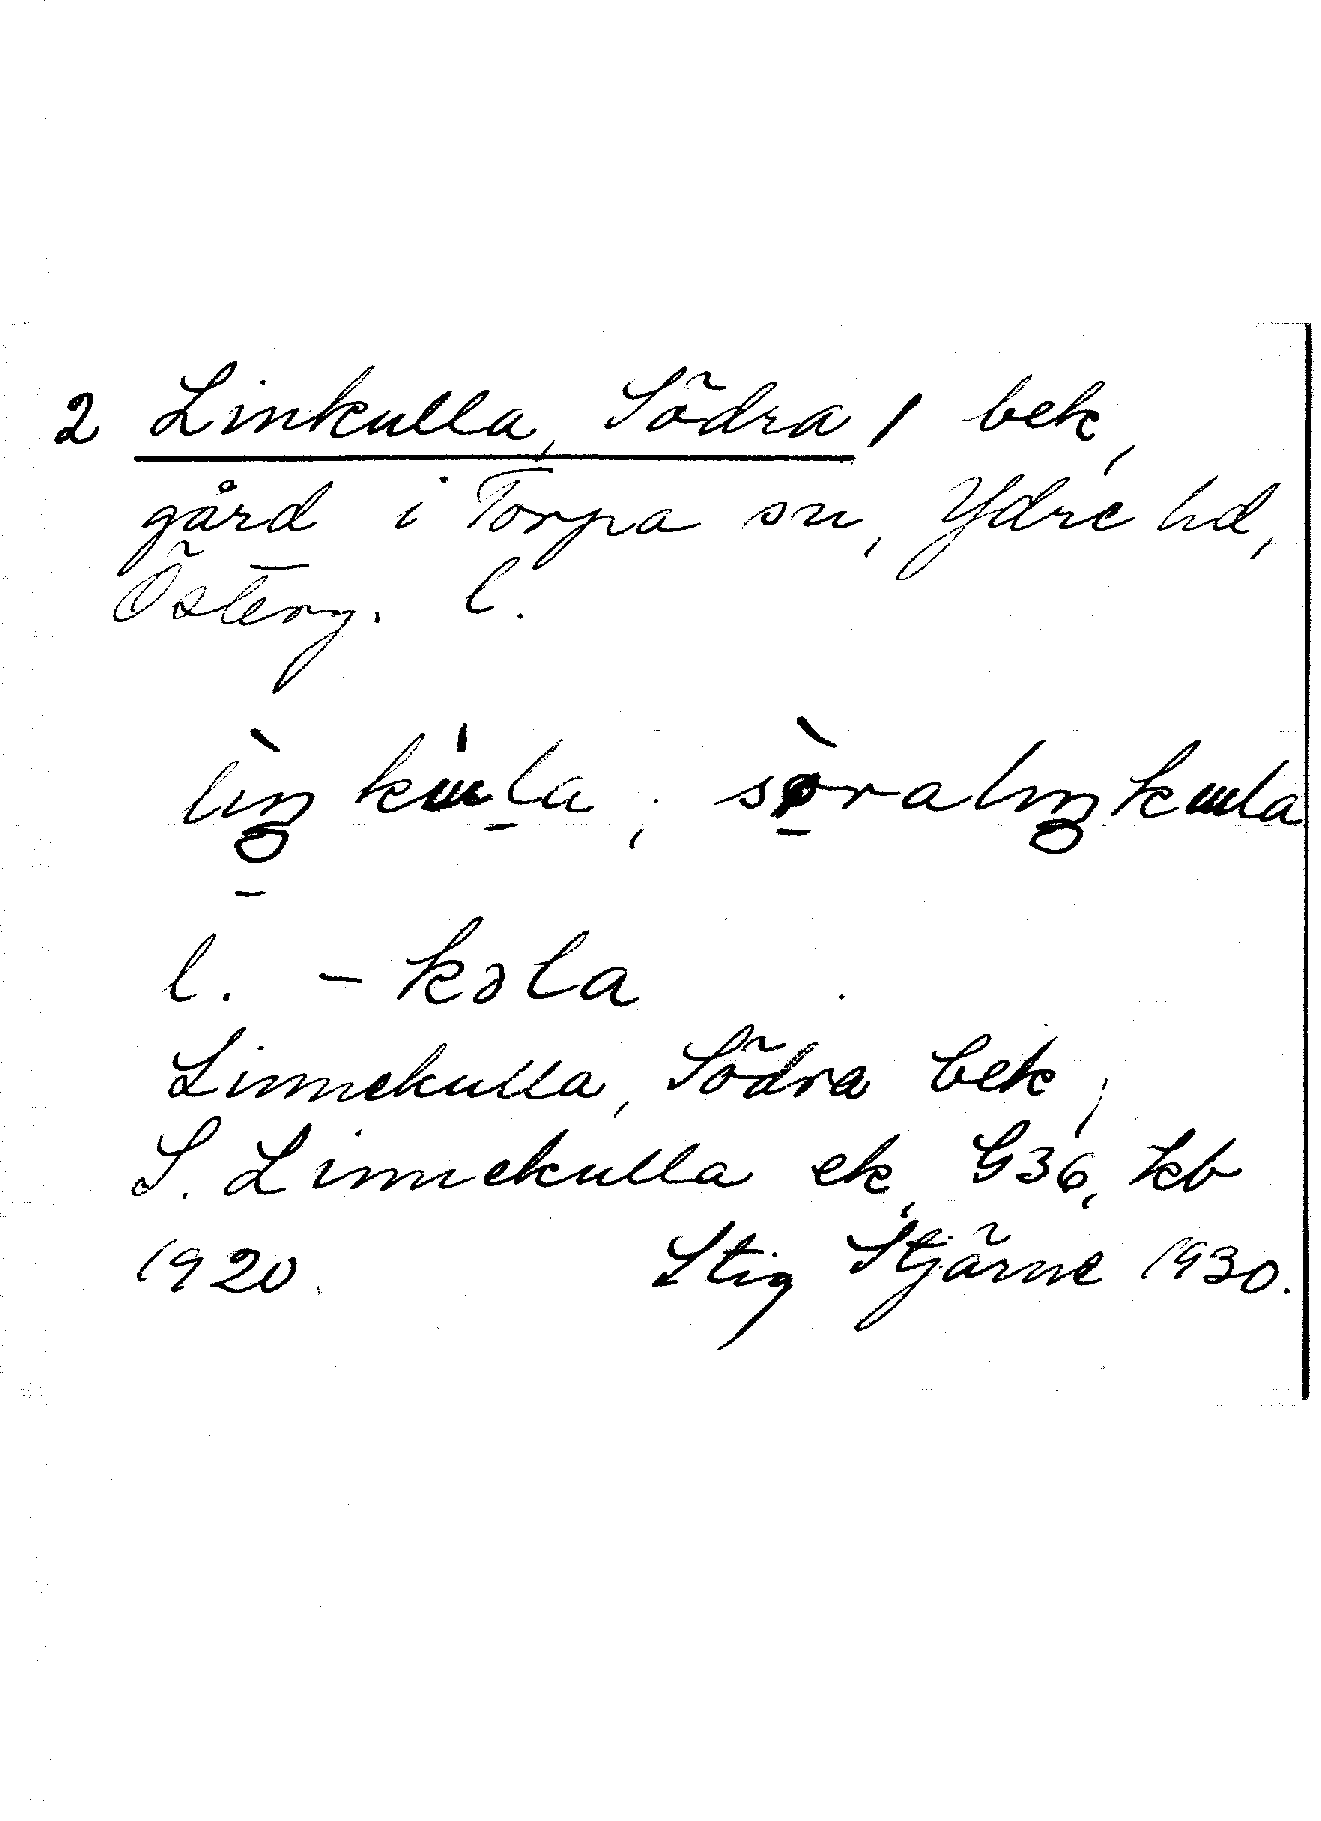 2 Linkulla, Södra / bek,
gård i Torpa sn, Ydre hd,
Österg. l.
l. - kəla
Linnekulla, Södra bek;
S. Linnekulla ek, G36, kb
1920. Stig Stjärne 1930.